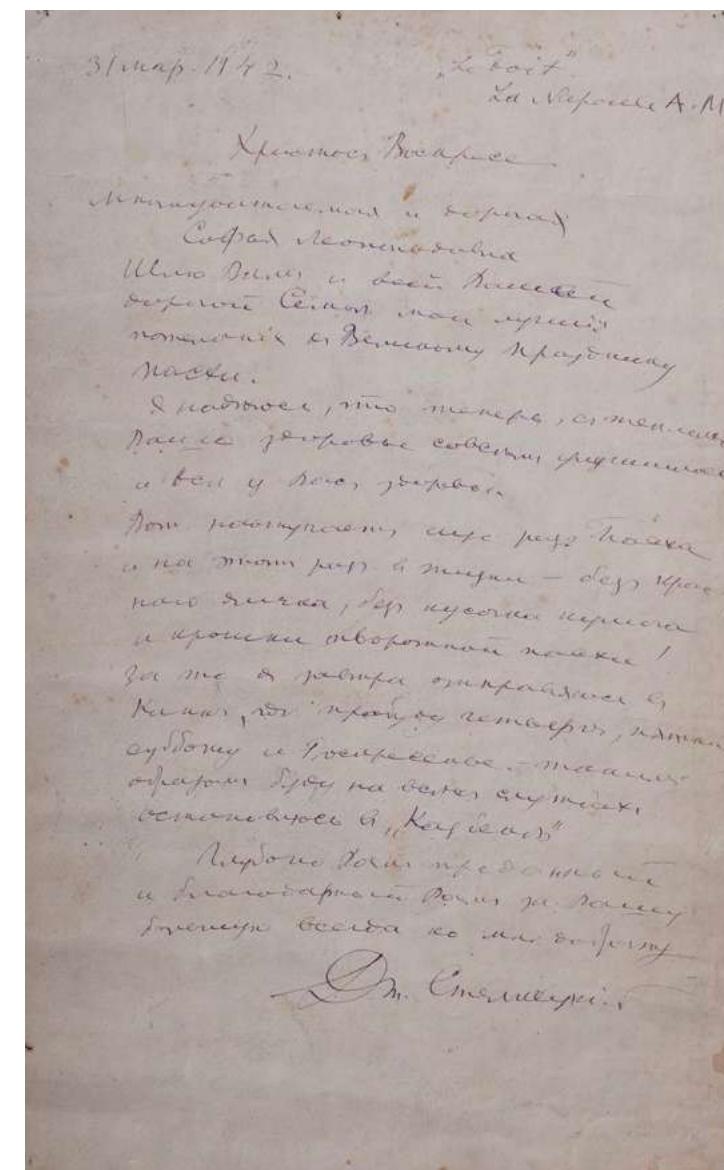 31 мар. 1942. „Le Toit”
La Napoule A.M
Христосъ Воскресе
Многоуважаемая и дорогая
Софья Леонидовна
Шлю Вамъ и всей Вашей
дорогой Семьѣ мои лучшія
пожеланія къ Великому Празднику
Пасхи.
Я надѣюсь, что теперь, съ
Ваше здоровье совсѣмъ
и всѣ у Васъ здоровы.
Вотъ наступаетъ еще разъ Пасха
и на этотъ разъ въ жизни – безъ крас
наго яичка, безъ кусочка кулича
и крошки творожной пасхи!
За то я завтра отправляюсь въ
Каннъ, гдѣ пробуду четвергъ, пятни
субботу и Воскресенье – такимъ
образомъ буду на всѣхъ службахъ
остановлюсь въ
Глубоко Вамъ преданный
и благодарный Вамъ за Вашу
всегда ко мнѣ доброту
Дм. Стеллецкій.